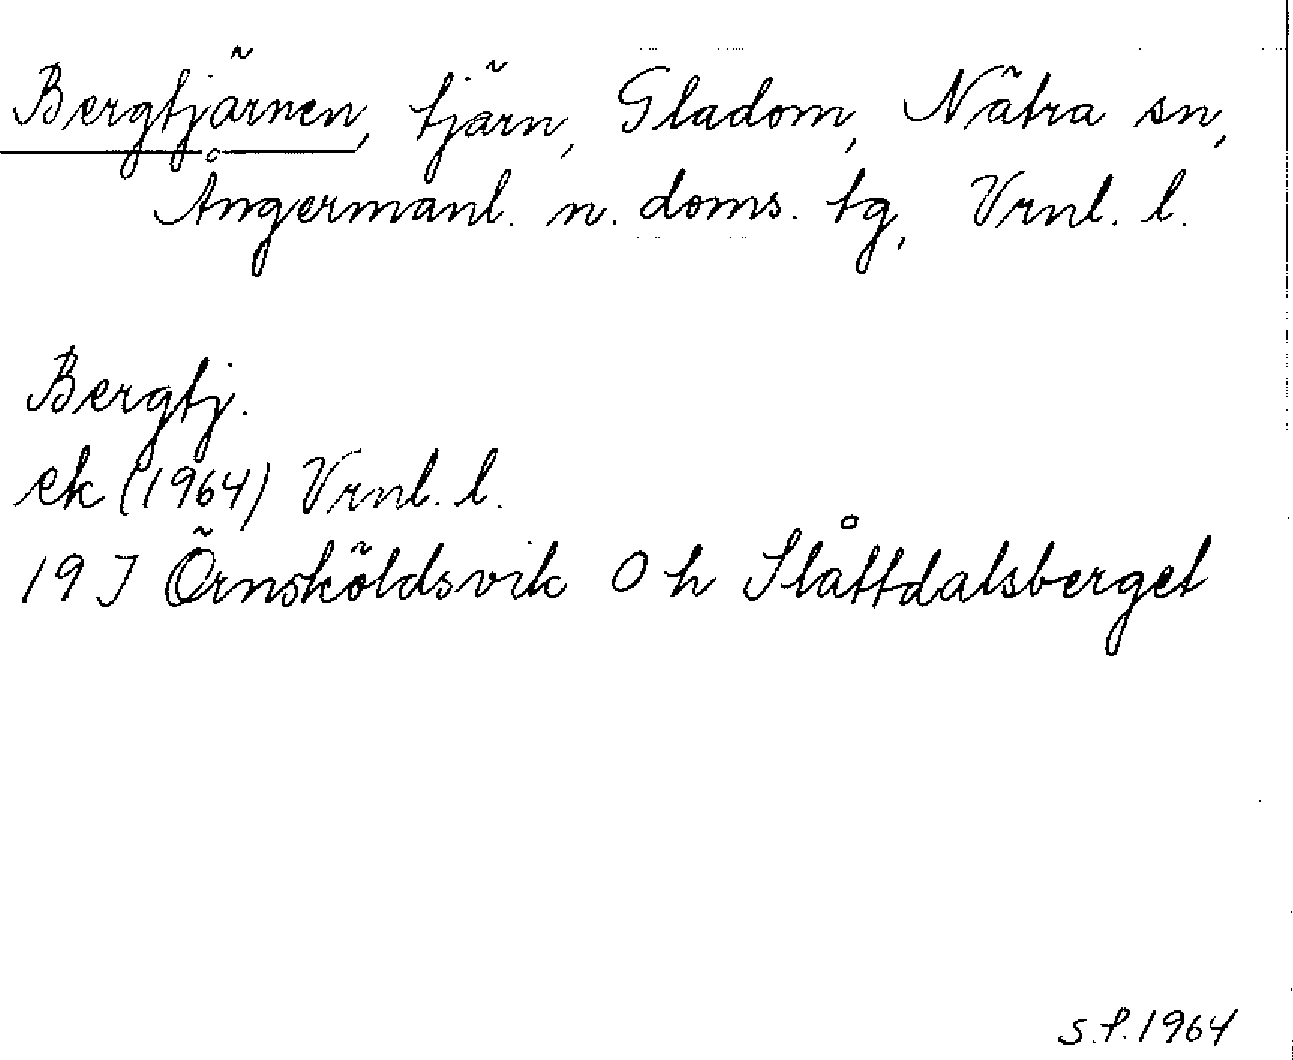 Bergtjärnen, tjärn, Gladom, Nätra sn,
Ångermanl. n. doms. tg, Vrnl. l.
Bergtj.
ek (1964) Vrnl. l.
19 J Örnsköldsvik 0 h Slåttdalsberget
S.P. 1964